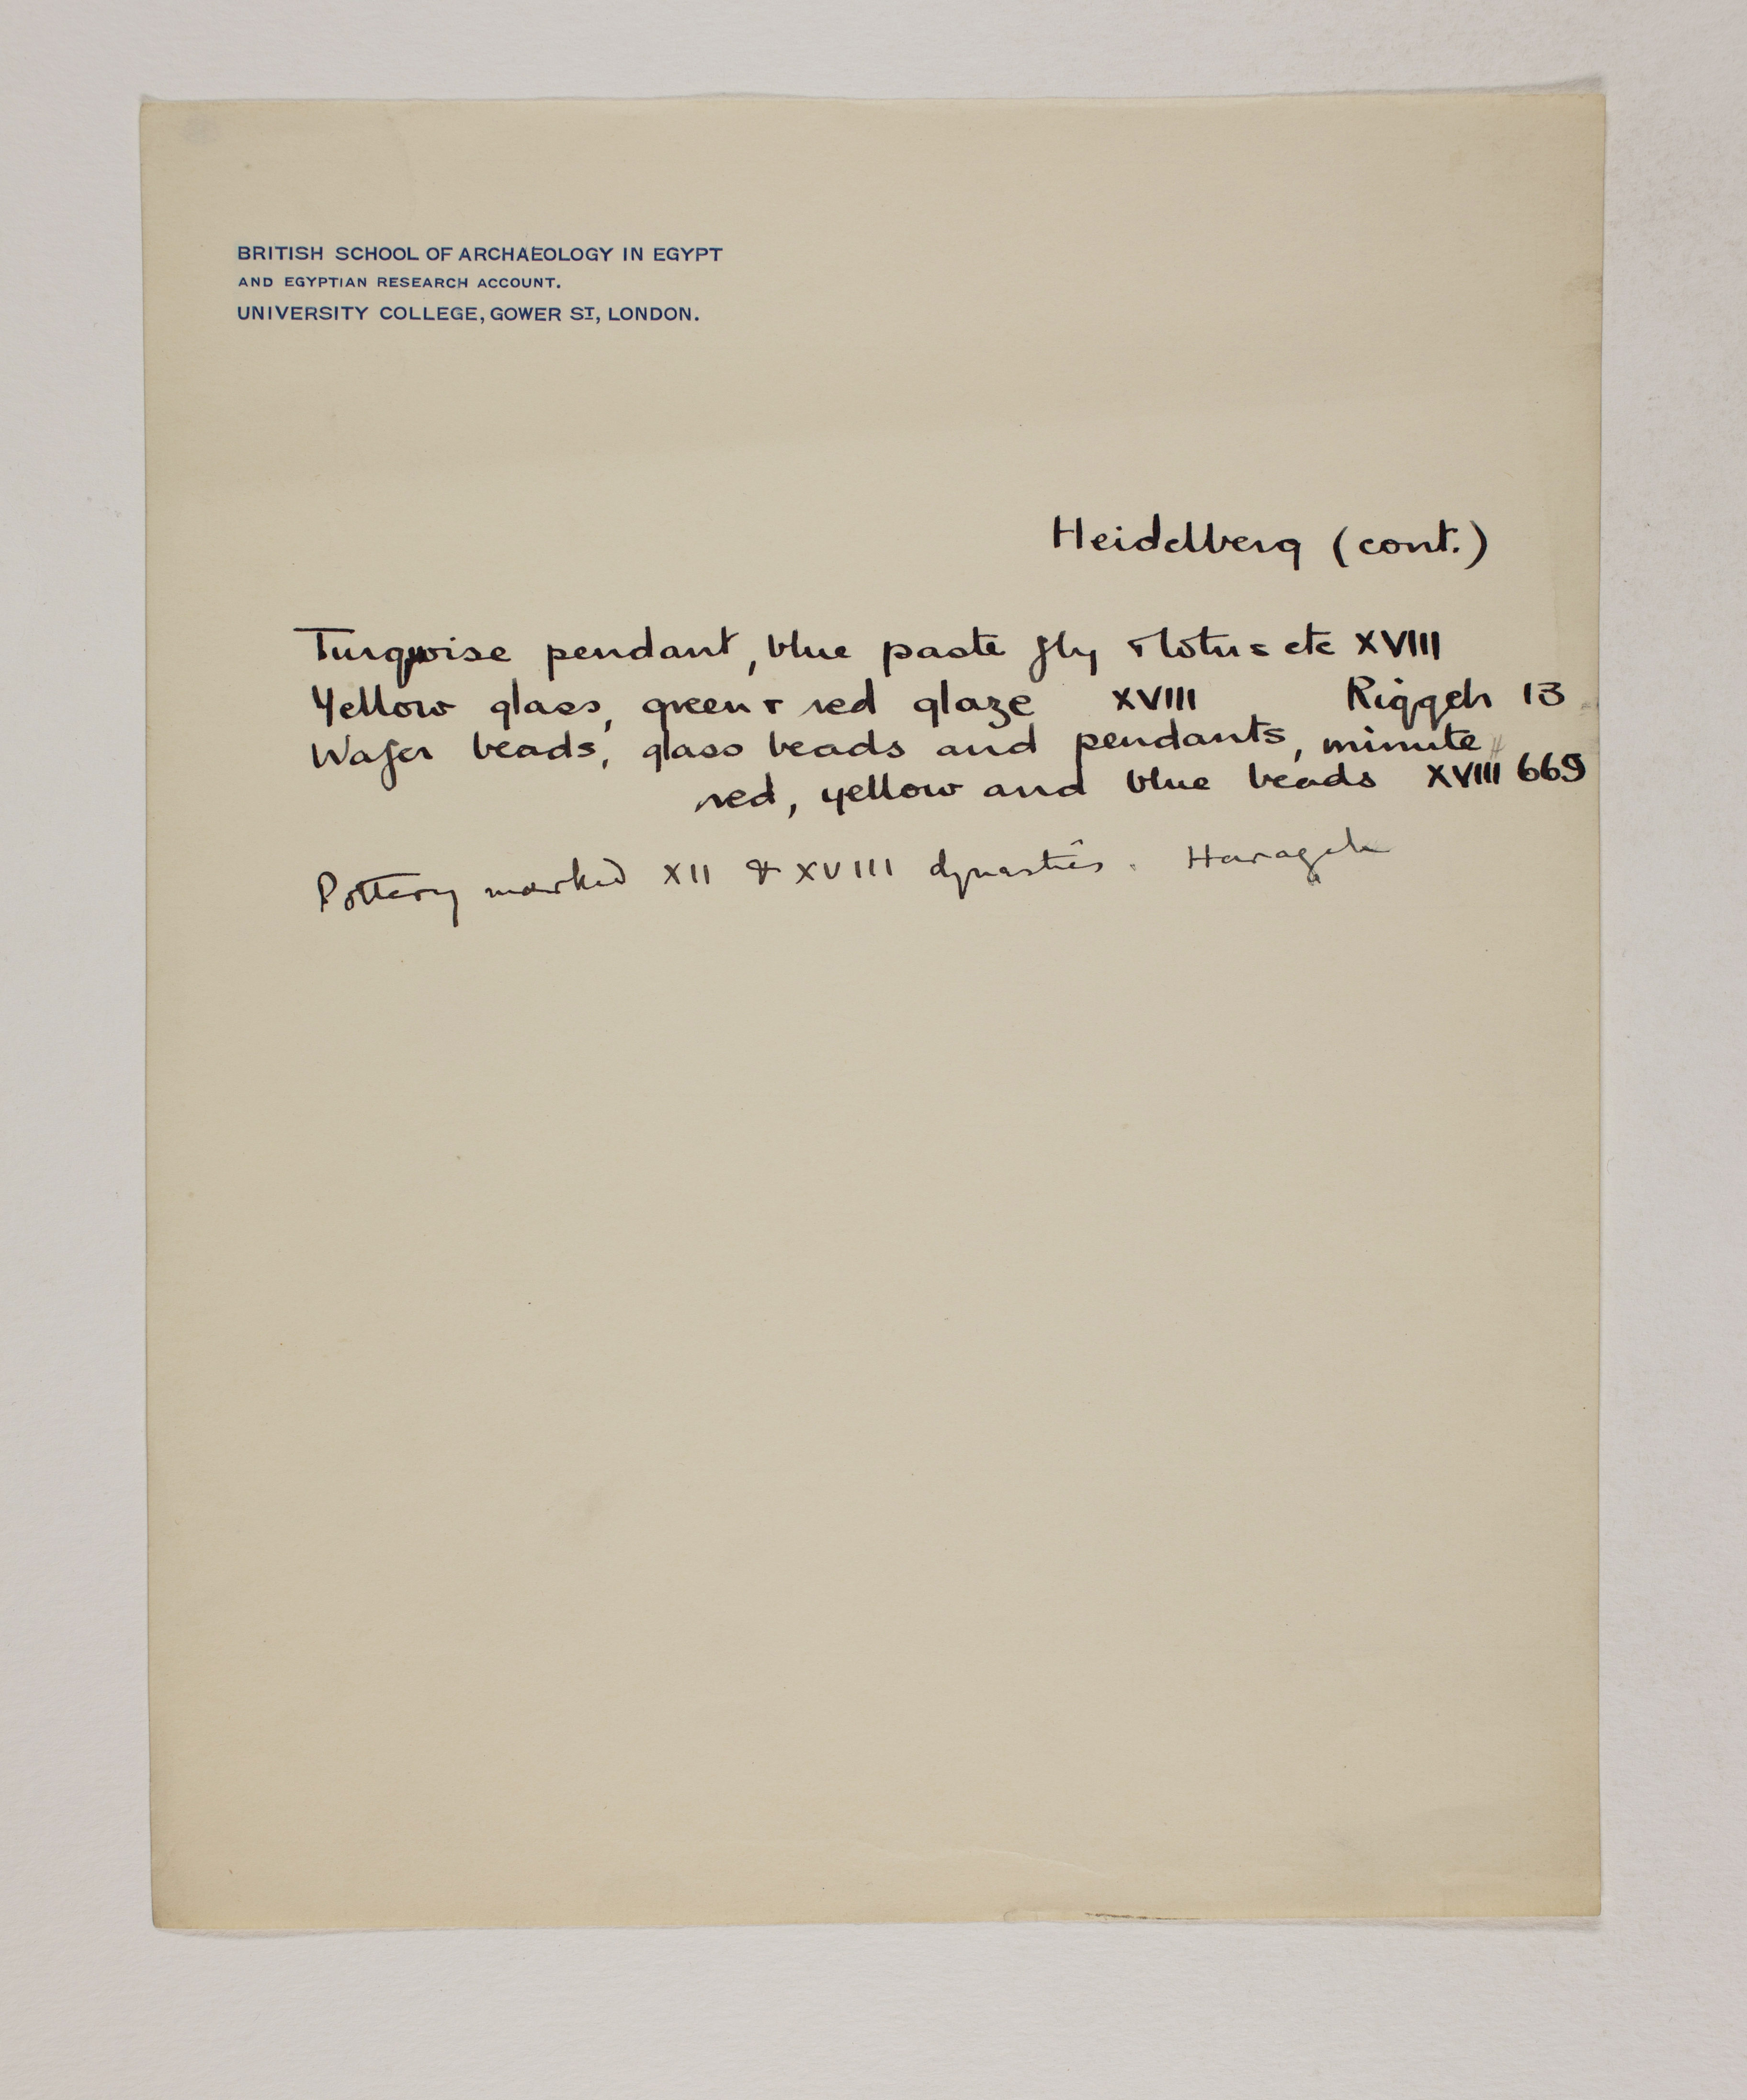 BRITISH SCHOOL OF ARCHAEOLOGY IN EGYPT
AND EGYPTIAN RESEARCH ACCOUNT.
UNIVERSITY COLLEGE, GOWER ST, LONDON.
Heidelberg (cont.)
Turqoise pendant, blue paste fly + lotus etc XVIII
Yellow glass, green + red glaze XVIII Riqqeh 13
Wafer beads, glass beads and pendants, minute
red, yellow and blue beads XVIII 669
Pottery marked XII & XVIII dynasties. Harageh